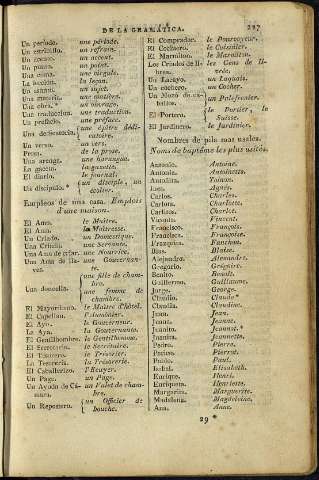 DE LA GRAMÁTICA. 227
Un período. une période.
Un estribillo. un refrain.
Un acento. un accent.
Un punto. un point.
Una coma. une virgule.
La leccion. la leçon.
Un sujeto.
Una materia. une matière.
Una obra. un ouvrage.
Una traduccion. une traduction.
Un prefacio. une préface.
Una dedicatoria. une épitre dédicatoire.
Un verso. un vers.
Prosa. de la prose.
Una arenga. une harangue.
La gaceta. la gazette.
El diario. le journal.
Un discípulo. un disciple, un écolier.
Empleos de una casa. Emplois
d'une maison.
El Amo. le Maître.
El Ama. la Maîtresse.
Un Criado. un Domestique.
Una Criada. une Servante.
Una Ama de criar. une Nourrice.
Una Ama de llaves. une Gouvernante.
Una doncella. une fille de chambre. une femme de chambre.
El Mayordomo. le Maître d'hôtel.
El Capellan. l'Aumônier.
El Ayo. le Gouverneur.
La Aya. la Gouvernante.
El Gentilhombre. le Gentilhomme.
El Secretario. le Secrétaire.
El Tesorero. le Trésorier.
La Tesorería. la Trésorerie.
El Caballerizo. l'Ecuyer.
Un Page. un Page.
Un Ayuda de Cámara. un Valet de chambre.
Un Repostero. un Officier de bouche.
El Comprador. le Pourvoyeur.
El Cocinero. le Cuisinier.
El Marmiton. le Marmiton.
Los Criados de librea. les Gens de livrée.
Un Lacayo. un Laquais.
Un cochero. un Cocher.
Un Mozo de caballos. un Palefrenier.
El Portero. le Portier, le Suisse.
El Jardinero. le Jardinier.
Nombres de pila mas usales.
Noms de baptême les plus usités.
Antonio. Antoine.
Antonia. Antoinette.
Antoñita. Toinon.
Ines. Agnès.
Carlos. Charles.
Carlota. Charlotte.
Carlitos. Charlot.
Vicente. Vincent.
Francisco. François.
Francisca. Françoise.
Frasquita. Fanchon.
Blas. Blaise.
Alejandro. Alexandre.
Gregorio. Grégoire.
Benito. Benoît.
Guillermo. Guillaume.
Jorge. George.
Claudio. Claude
Claudia. Claudine.
Juan. Jean.
Juana. Jeanne.
Juanito. Jeannot.
Juanita. Jeannette.
Pedro. Pierre.
Perico. Pierrot.
Pablo. Paul.
Isabel. Elisabeth.
Enrique. Henri.
Enriqueta. Henriette.
Margarita. Marguerite.
Madalena. Magdeleine.
Ana. Anne.
29 *